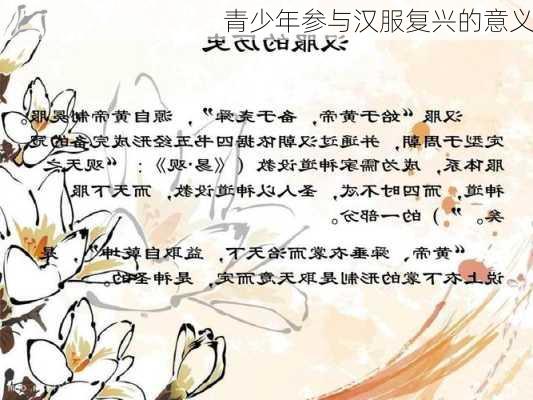 青少年参与汉服复兴的意义
汉服的历史
汉服“始于黄帝，备于尧舜”，源自黄帝制冕服。
定型于周朝，并通过汉朝依据四书五经形成完备的冠
服体系，成为儒家神道设教（《易·观》：“观天之
神道，而四时不忒，圣人以神道设教，而天下服
矣。”）的一部分。
“黄帝、舜垂衣裳而治天下，益取自乾坤”，是
说上衣下裳的形制是取天意而定，是神圣的。